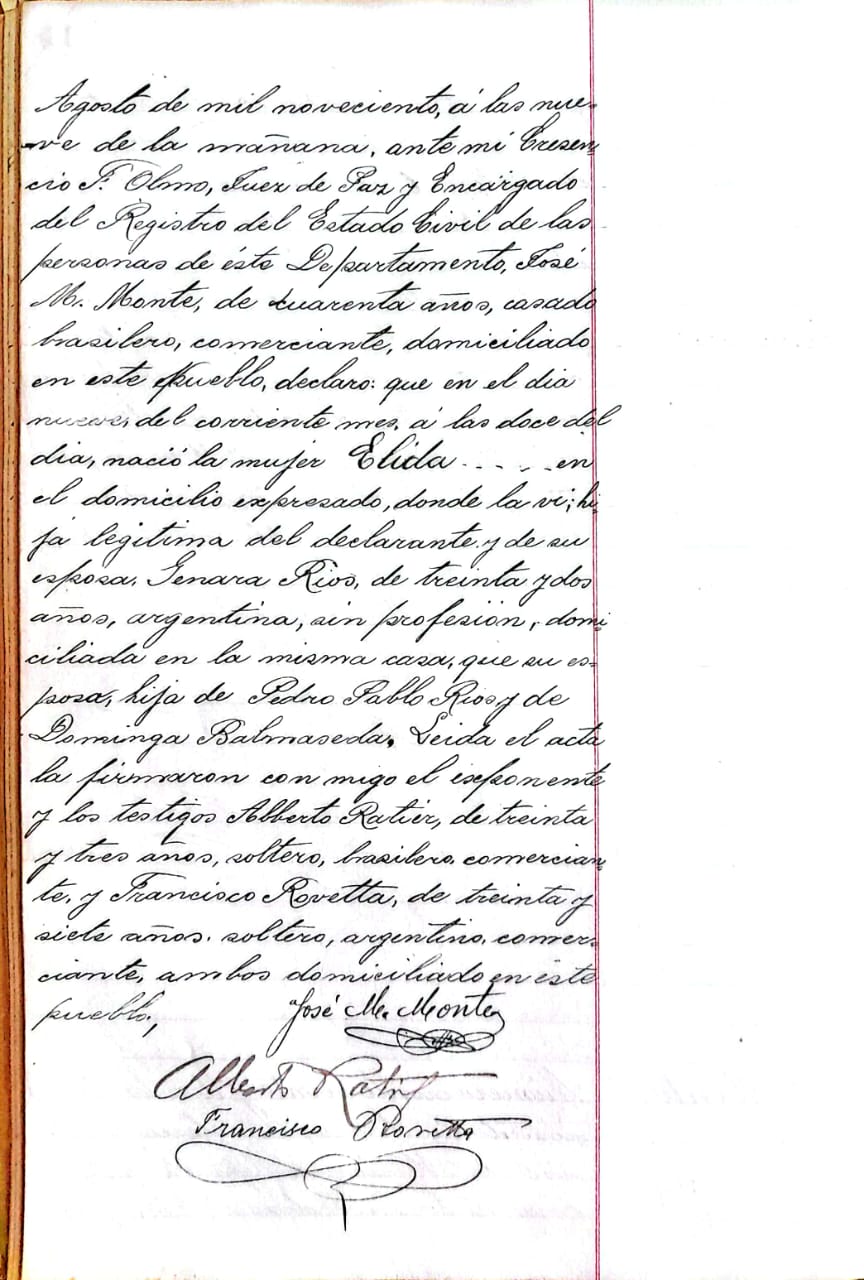 Agosto de mil noveciento, á las nue-
ve de la mañana, ante mi Cresen-
cio F. Olmo, Juez de Paz y Encargado
del Registro del Estado Civil de las
personas de éste Departamento, José
M. Monte, de cuarenta años, casado
brasilero, comerciante, domiciliado
en este pueblo, declaro: que en el dia
nueve, del corriente mes, á las doce del
dia, nació la mujer Elida - - - - - en
el domicilio expresado, donde la vi; hi-
ja legitima del declarante y de su
esposa, Genara Rios, de treinta y dos
años, argentina, sin profesión, domi-
ciliada en la misma casa, que su es-
posa, hija de Pedro Pablo Rios y de
Dominga Balmaseda. Leida el acta
la firmaron con migo el exponente
y los testigos Alberto Ratiér, de treinta
y tres años, soltero, brasilero, comercian-
te, y Francisco Rovetta, de treinta y
siete años, soltero, argentino, comer-
ciante, ambos domiciliado en éste
pueblo,
José M. Monte
Alberto Ratiér
Francisco Rovetta